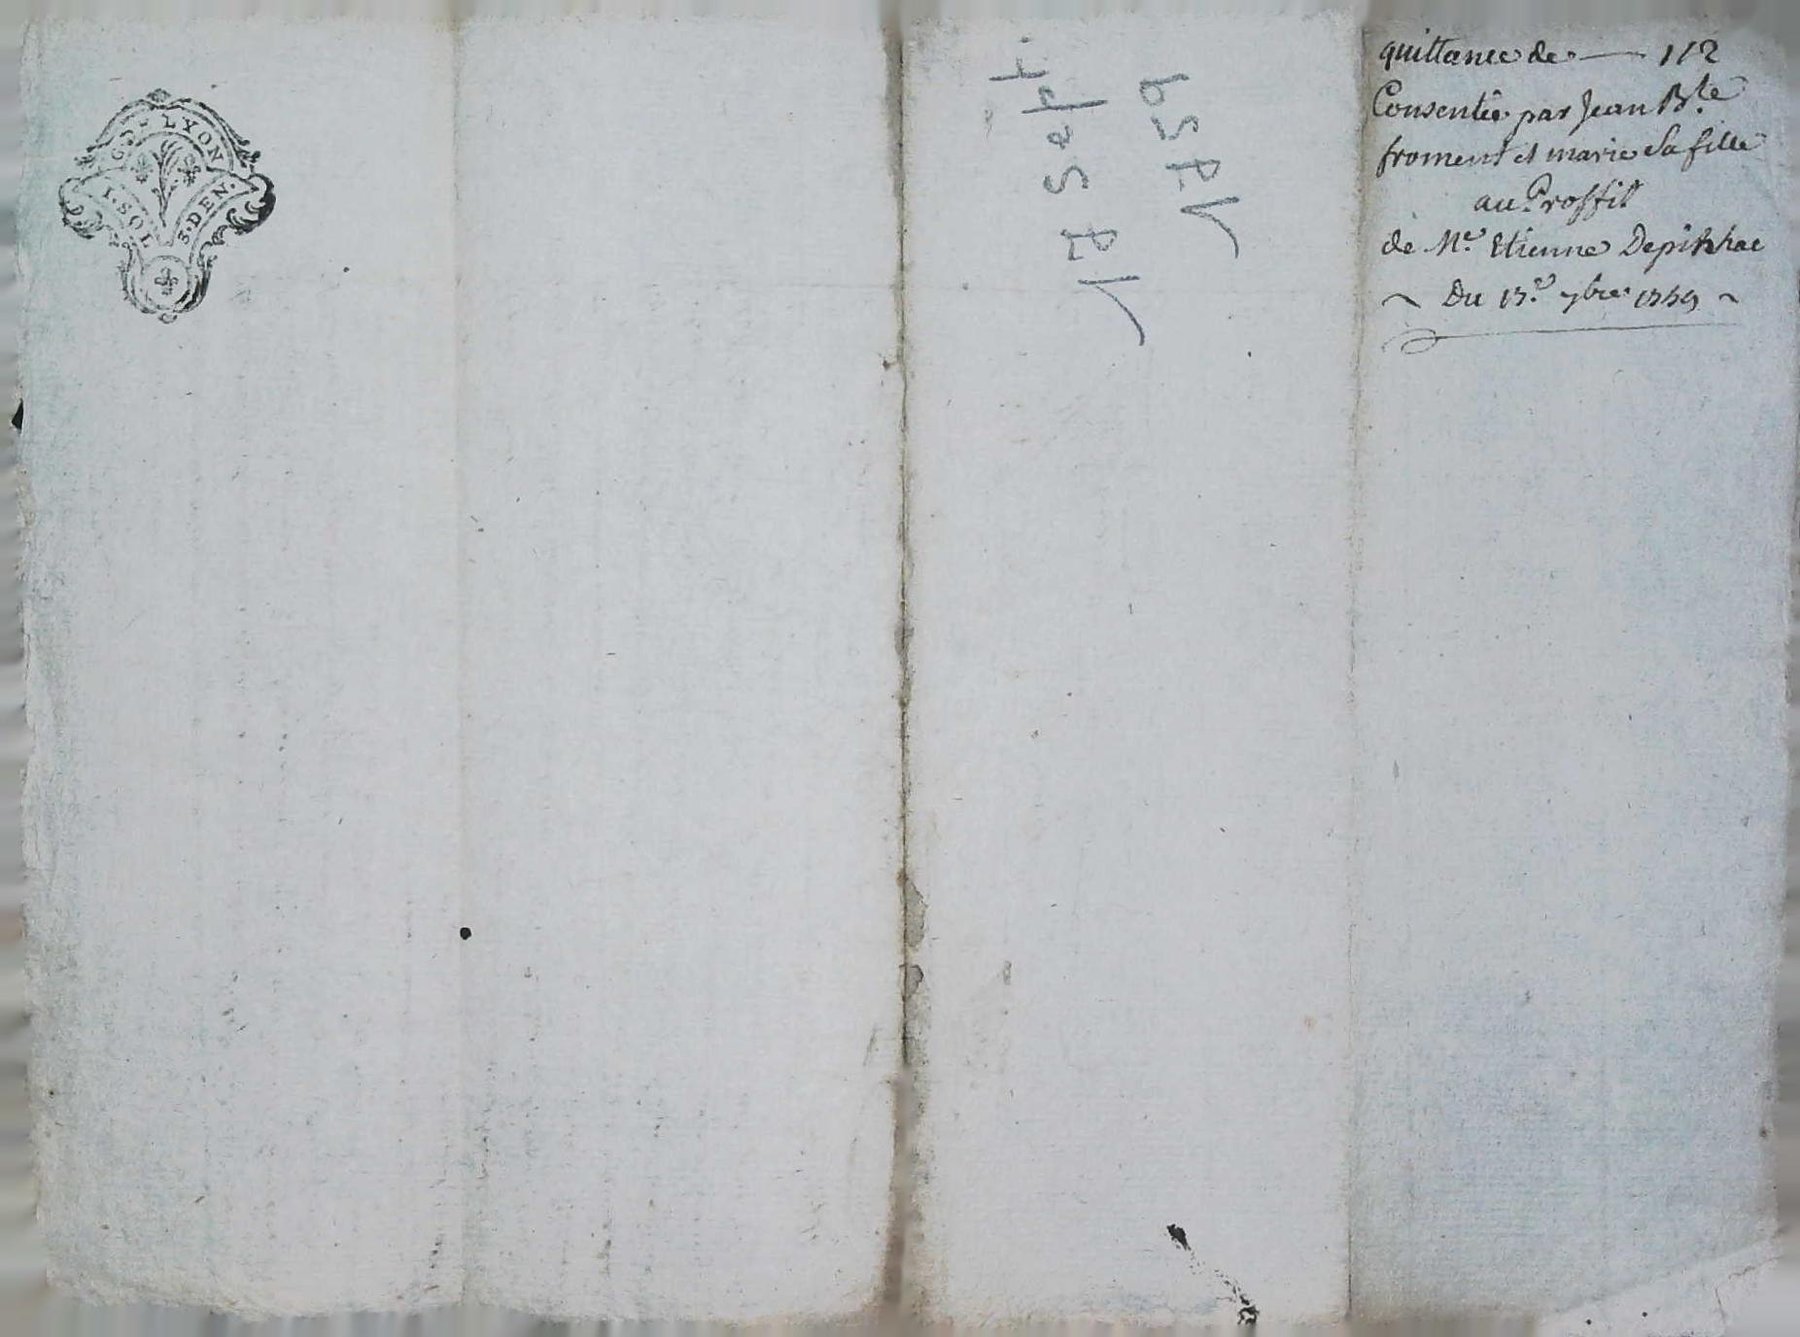 GD - LYON
1. SOL 3. DEN.
17 Sept
1759
quittance de — 112
Consentie par Jean Bte
froment et marie sa fille
au Proffit
de Me Etienne
Du 17e 7bre 1759